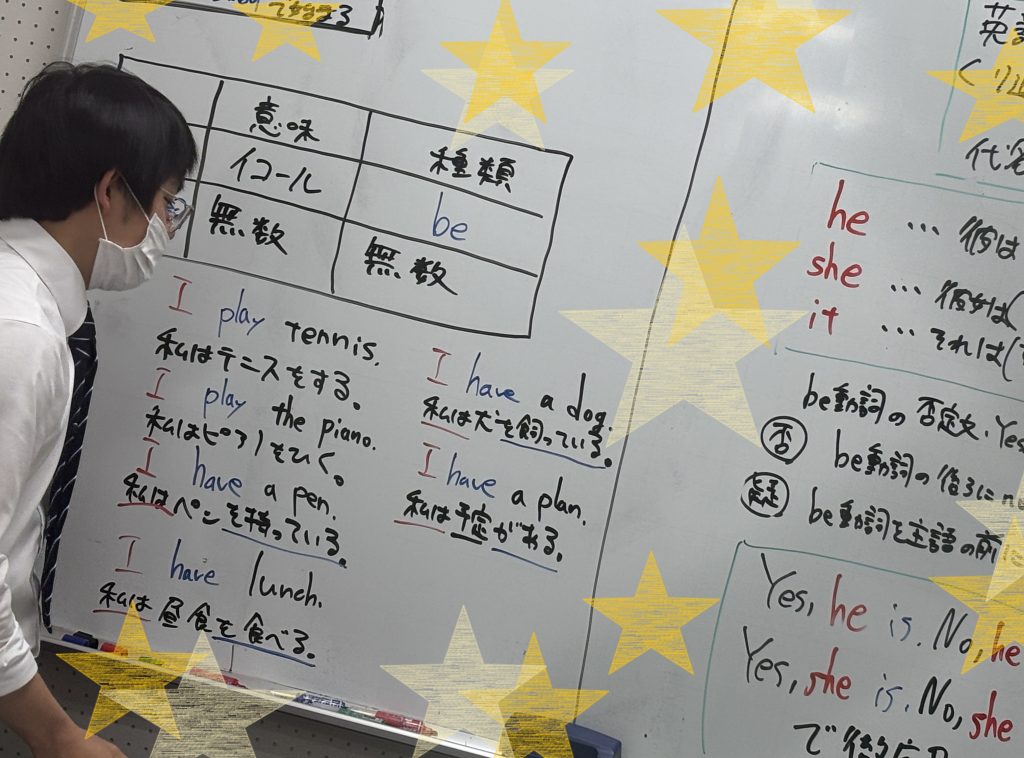 で始まる
意味 種類
イコール be
無数 無数
I play tennis.
私はテニスをする。
I play the piano.
私はピアノをひく。
I have a pen.
私はペンを持っている。
I have lunch.
私は昼食を食べる。
I have a dog.
私は犬を飼っている。
I have a plan.
私は予定がある。
英語
くり
代名
he … 彼は
she … 彼女は(
it … それは(
be動詞の否定文、Yes
否 be動詞の後ろにno
疑 be動詞を主語の前に
Yes, he is. No, he
Yes, she is. No, she
で